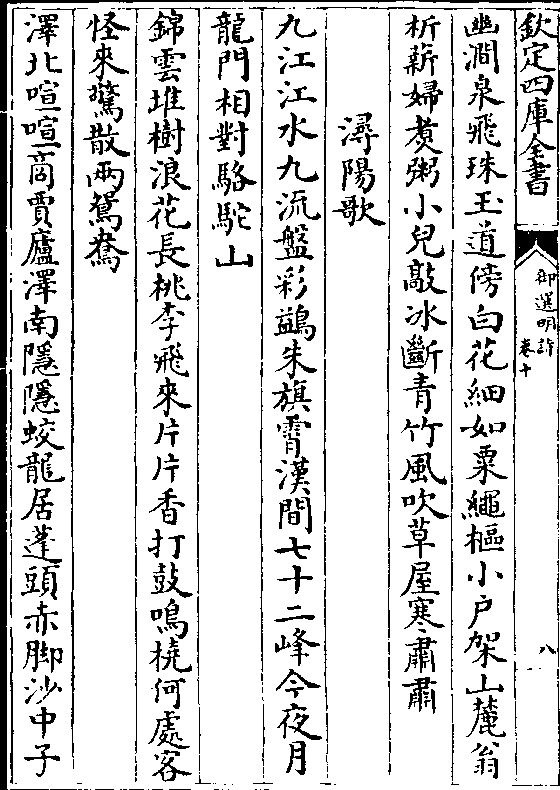 欽定四庫全書
御選明詩
卷十
八
幽澗泉飛珠玉道傍白花細如粟繩樞小户架山麓翁
析薪婦煑粥小兒敲冰斷青竹風吹草屋寒肅肅
潯陽歌
九江江水九流盤彩鷁朱旗霄漢間七十二峰今夜月
龍門相對駱駝山
錦雲堆樹浪花長桃李飛來片片香打鼓鳴橈何處客
怪來驚散兩鴛鴦
澤北喧喧商賈廬澤南隱隱蛟龍居蓬頭赤脚沙中子